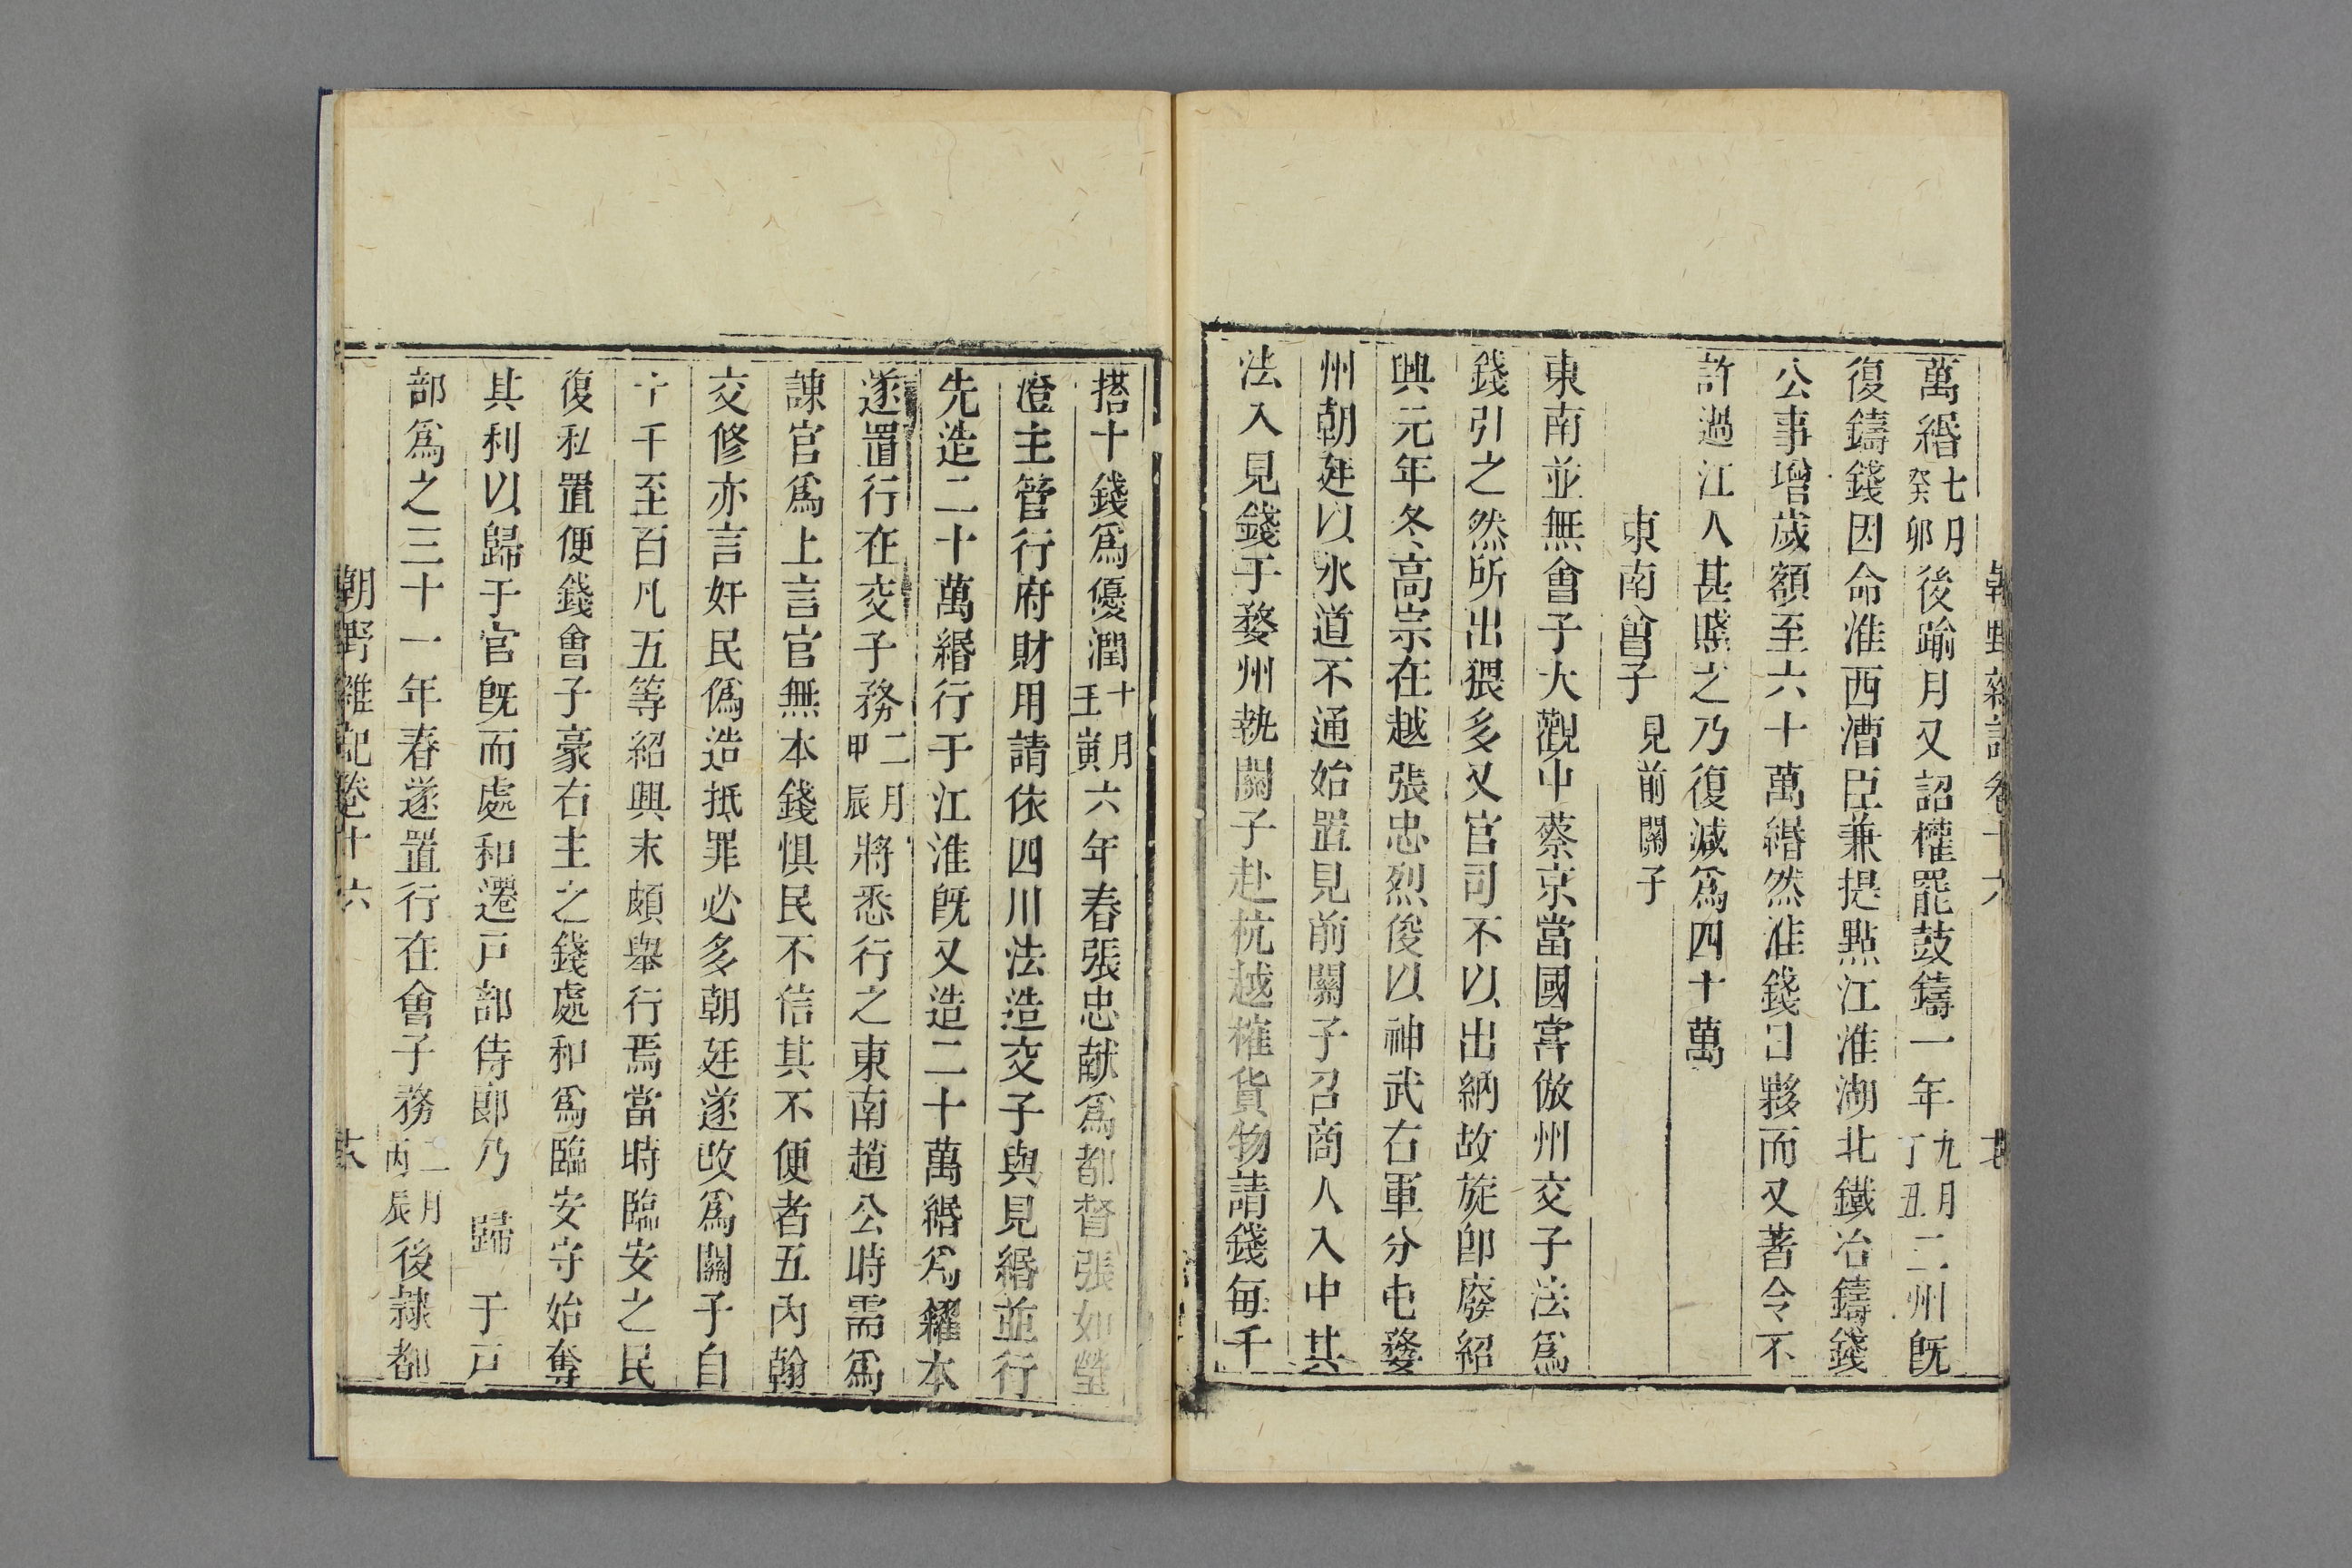 萬緡七月癸卯後踰月又詔權罷鼓鑄一年九月丁丑二州旣
復鑄錢因命淮西漕臣兼提點江淮湖北鐵冶鑄錢
公事增歲額至六十萬緡然淮錢日夥而又著令不
許過江人甚賤之乃復減爲四十萬
東南會子見前關子
東南並無會子大觀中蔡京當國嘗倣州交子法爲
錢引之然所出猥多又官司不以出納故旋卽廢紹
興元年冬高宗在越張忠烈俊以神武右軍分屯婺
州朝廷以水道不通始置見前關子召商人入中其
法入見錢于婺州執關子赴杭越榷貨物請錢每千
搭十錢爲優潤十月壬寅六年春張忠獻爲都督張如瑩
澄主管行府財用請依四川法造交子與見緡並行
先造二十萬緡行于江淮旣又造二十萬緡爲糴本
遂置行在交子務二月甲辰將悉行之東南趙公時需爲
諫官爲上言官無本錢惧民不信其不便者五內翰
交修亦言奸民僞造抵罪必多朝廷遂改爲關子自
十千至百凡五等紹興末頗舉行焉當時臨安之民
復私置便錢會子豪右主之錢處和爲臨安守始奪
其利以歸于官旣而處和遷戸部侍郎乃歸于戸
部爲之三十一年春遂置行在會子務二月丙辰後隸都
朝野雜記卷十六